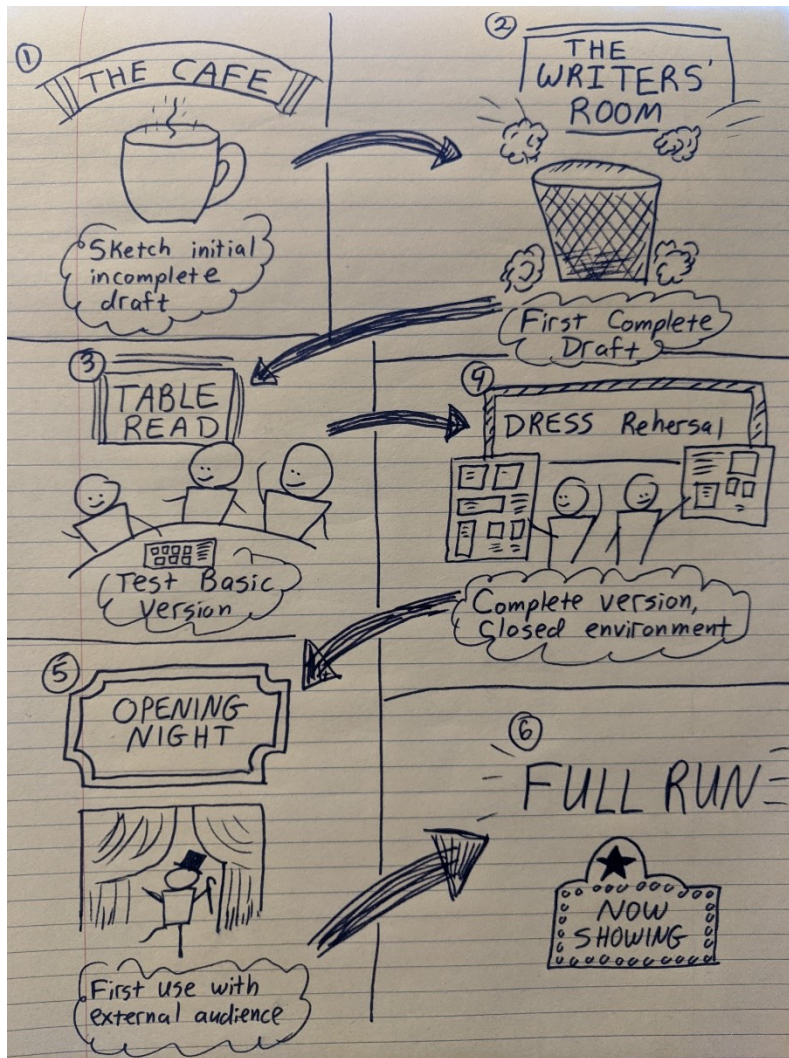 ①
THE CAFE
Sketch initial
incomplete
draft
②
THE
WRITERS'
ROOM
First Complete
Draft
③
TABLE
READ
Test Basic
Version
④
DRESS Rehersal
Complete version,
closed environment
⑤
OPENING
NIGHT
First use with
external audience
⑥
FULL RUN
NOW
SHOWING